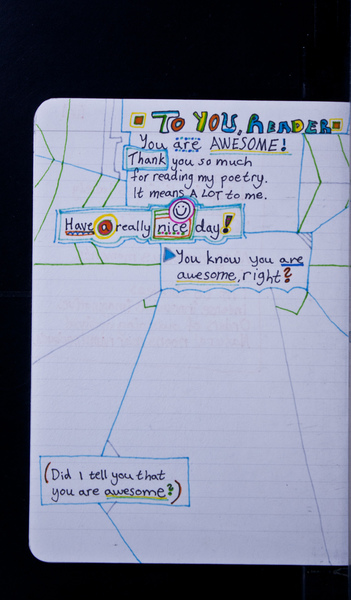 TO YOU, READER
You are AWESOME!
Thank you so much
for reading my poetry.
It means A LOT to me.
Have a really nice day!
You know you are
awesome, right?
(Did I tell you that
you are awesome?)